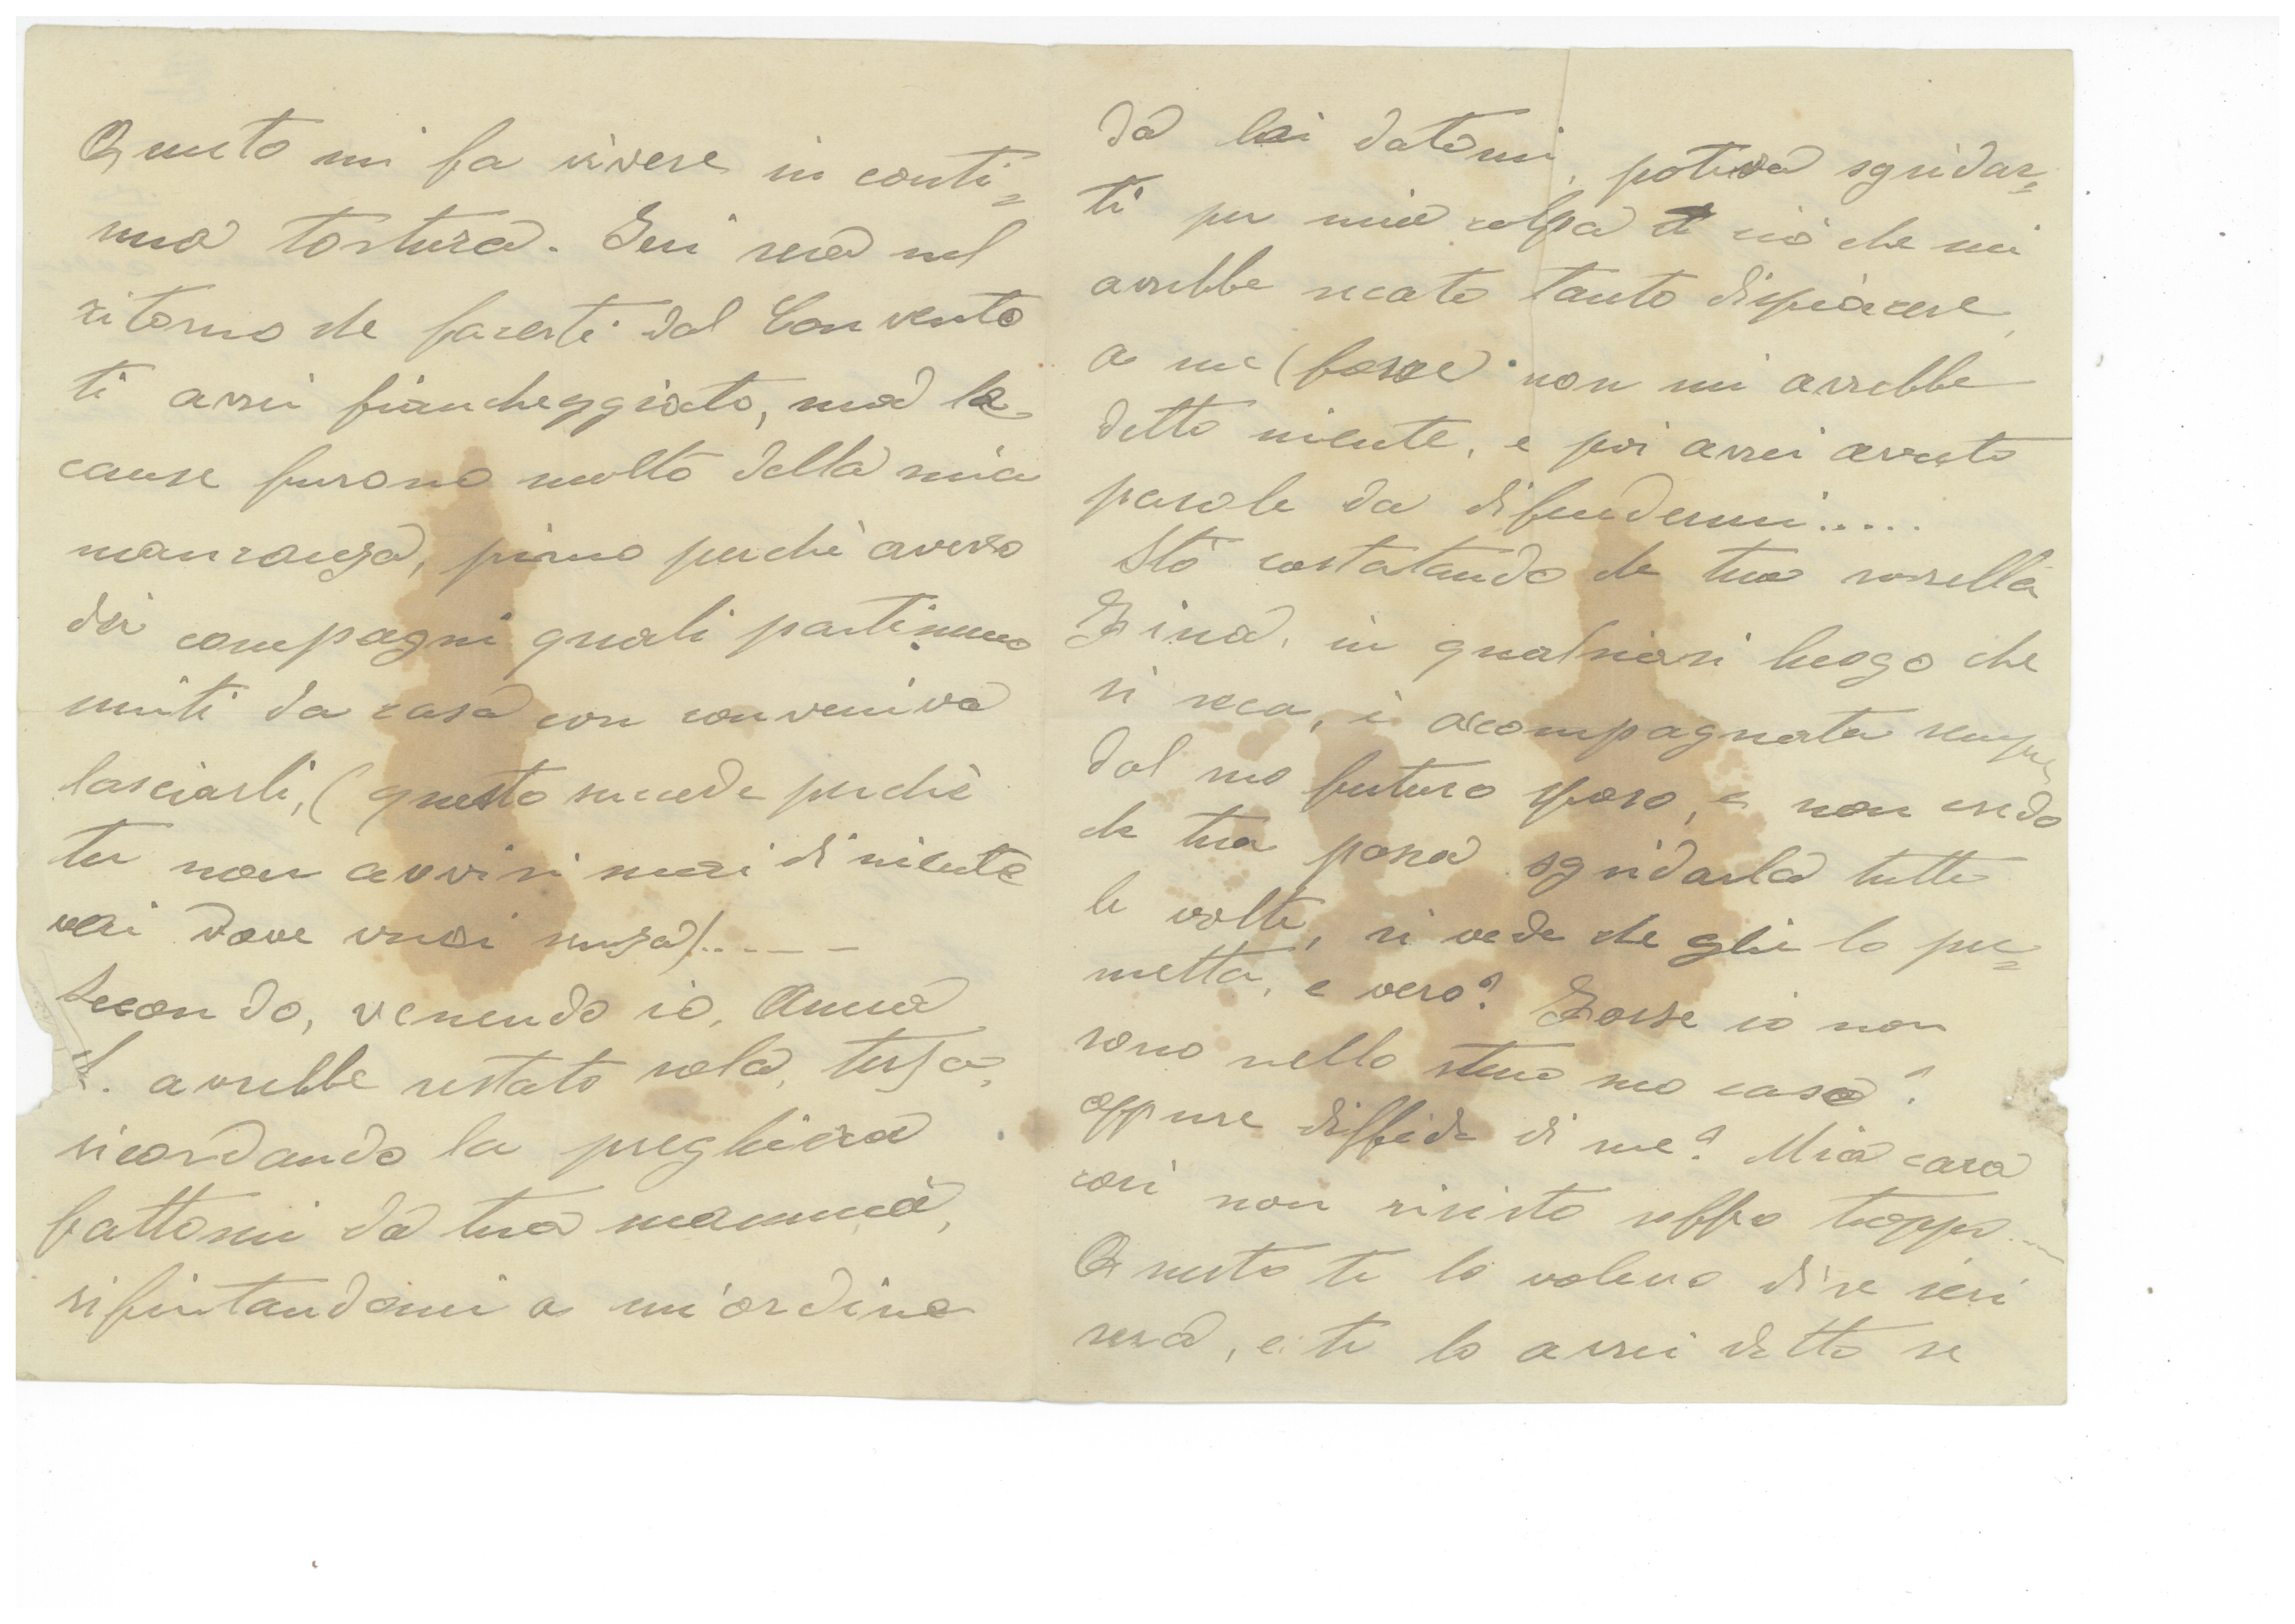 Questo mi fa vivere in conti=
nua tortura. Ieri sera nel
ritorno che facesti dal Convento
ti avrei fiancheggiato, ma le
cause furono molto della mia
mancanza, primo perchè avevo
dei compagni quali partimmo
uniti da casa con conveniva
lasciarli, (questo succede perchè
tu non avvisi mai di niente
vai dove vuoi senza).....
Secondo, venendo io, Anna
S. avrebbe restato sola, terza,
ricordando la preghiera
fattomi da tua mamma,
rifiutandomi a un'ordine
da lei datomi, poteva sgridar=
ti per mia colpa ciò che mi
avrebbe recato tanto dispiacere,
a me (forse non mi avrebbe
detto niente, e poi avrei avuto
parole da difendermi.....
Stò costatando che tua sorella
Gina, in qualsiasi luogo che
si reca, è accompagnata sempre
dal suo futuro sposo, e non credo
che tua possa sgridarla tutte
le volte, si vede che glie lo per=
metta, e vero? Forse io non
sono nello stesso suo caso?
oppure diffida di me? Mia cara
così non resisto soffro troppo....
Questo te lo volevo dire ieri
sera, e te lo avrei detto se